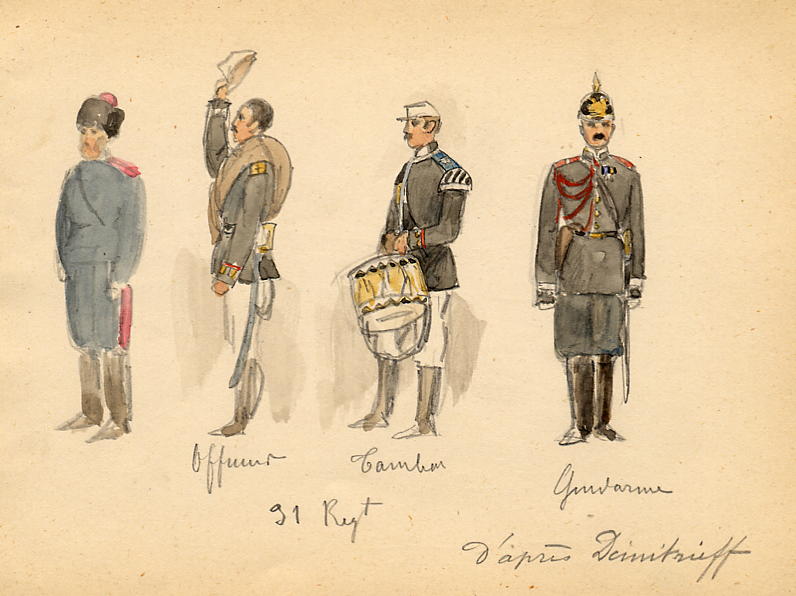 Officier
Tambour
Gendarme
91 Regt
D'après Dimitrieff